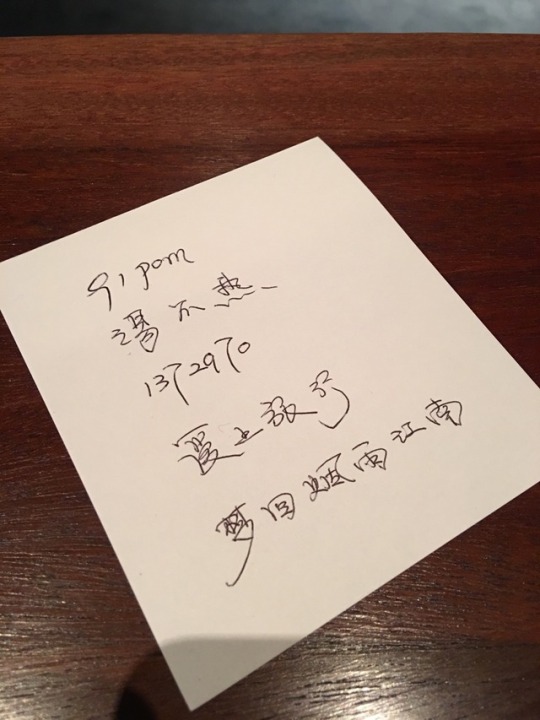 91pom
湯不热
1372970
爱上张弓
梦回烟雨江南